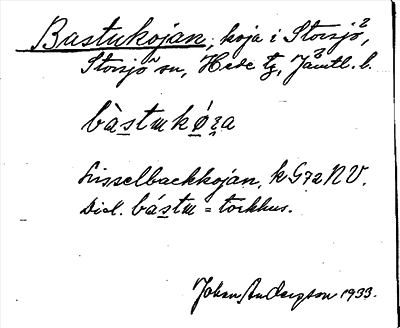 Bastukojan, koja i Storsjö,
Storsjö sn, Hede tg, Jämtl. l.
bàstukóza
Lisselbackkojan, k G72 NV.
Dial. bástu = torkhus.
Johan Andersson 1933.